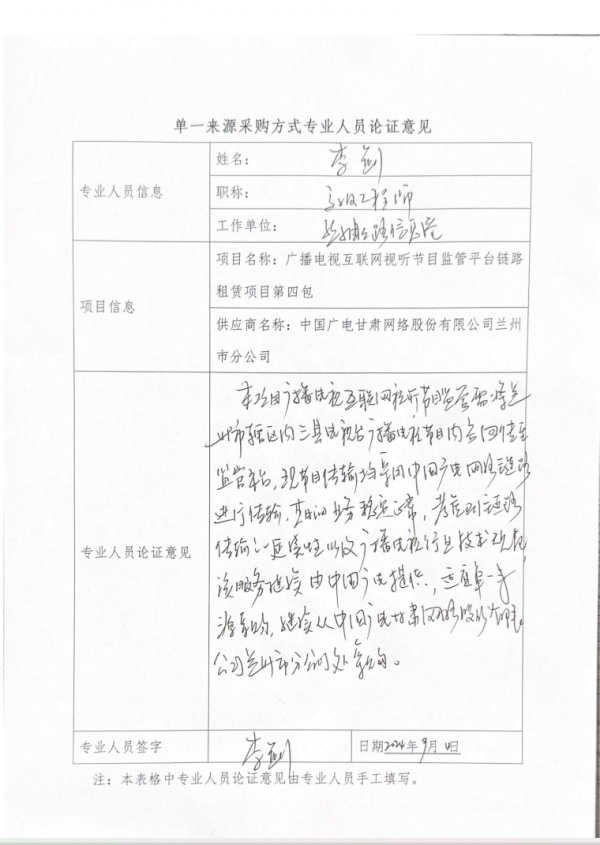 单一来源采购方式专业人员论证意见
专业人员信息
姓名：
李剑
职称：
高级工程师
工作单位：
项目信息
项目名称：广播电视互联网视听节目监管平台链路
租赁项目第四包
供应商名称：中国广电甘肃网络股份有限公司兰州
市分公司
专业人员论证意见
本项目广播电视互联网视听节目监管需将兰
州市辖区内三县电视台广播电视节目内容回传至
监管平台，现节目传输均采用中国广电网络链路
进行传输，业务稳定正常，考虑到链路
传输延续性以及广播电视行业技术规范
该服务继续由中国广电提供，适宜单一来
源采购，继续从中国广电甘肃网络股份有限
公司兰州市分公司处采购。
专业人员签字
李剑
日期2024年9月 日
注：本表格中专业人员论证意见由专业人员手工填写。